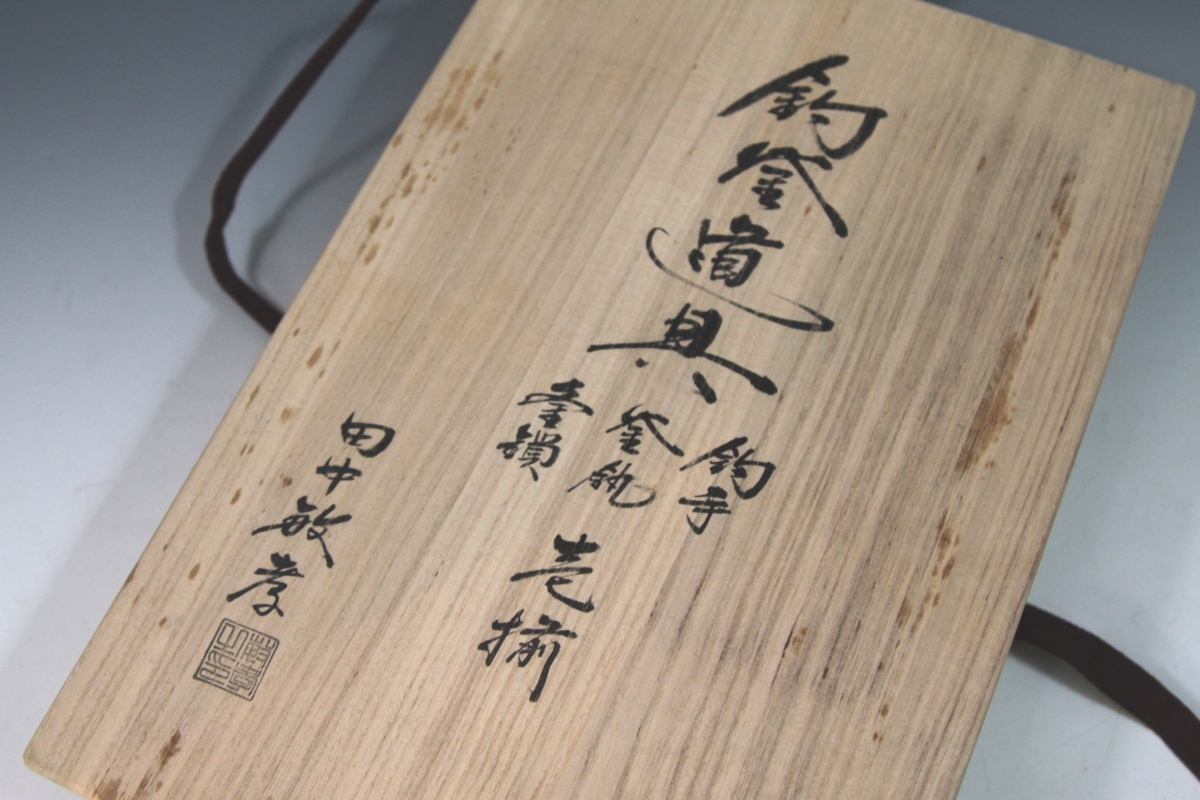 釣釜道具
釣手
釜釻
壷鎖
壱揃
田中敏孝